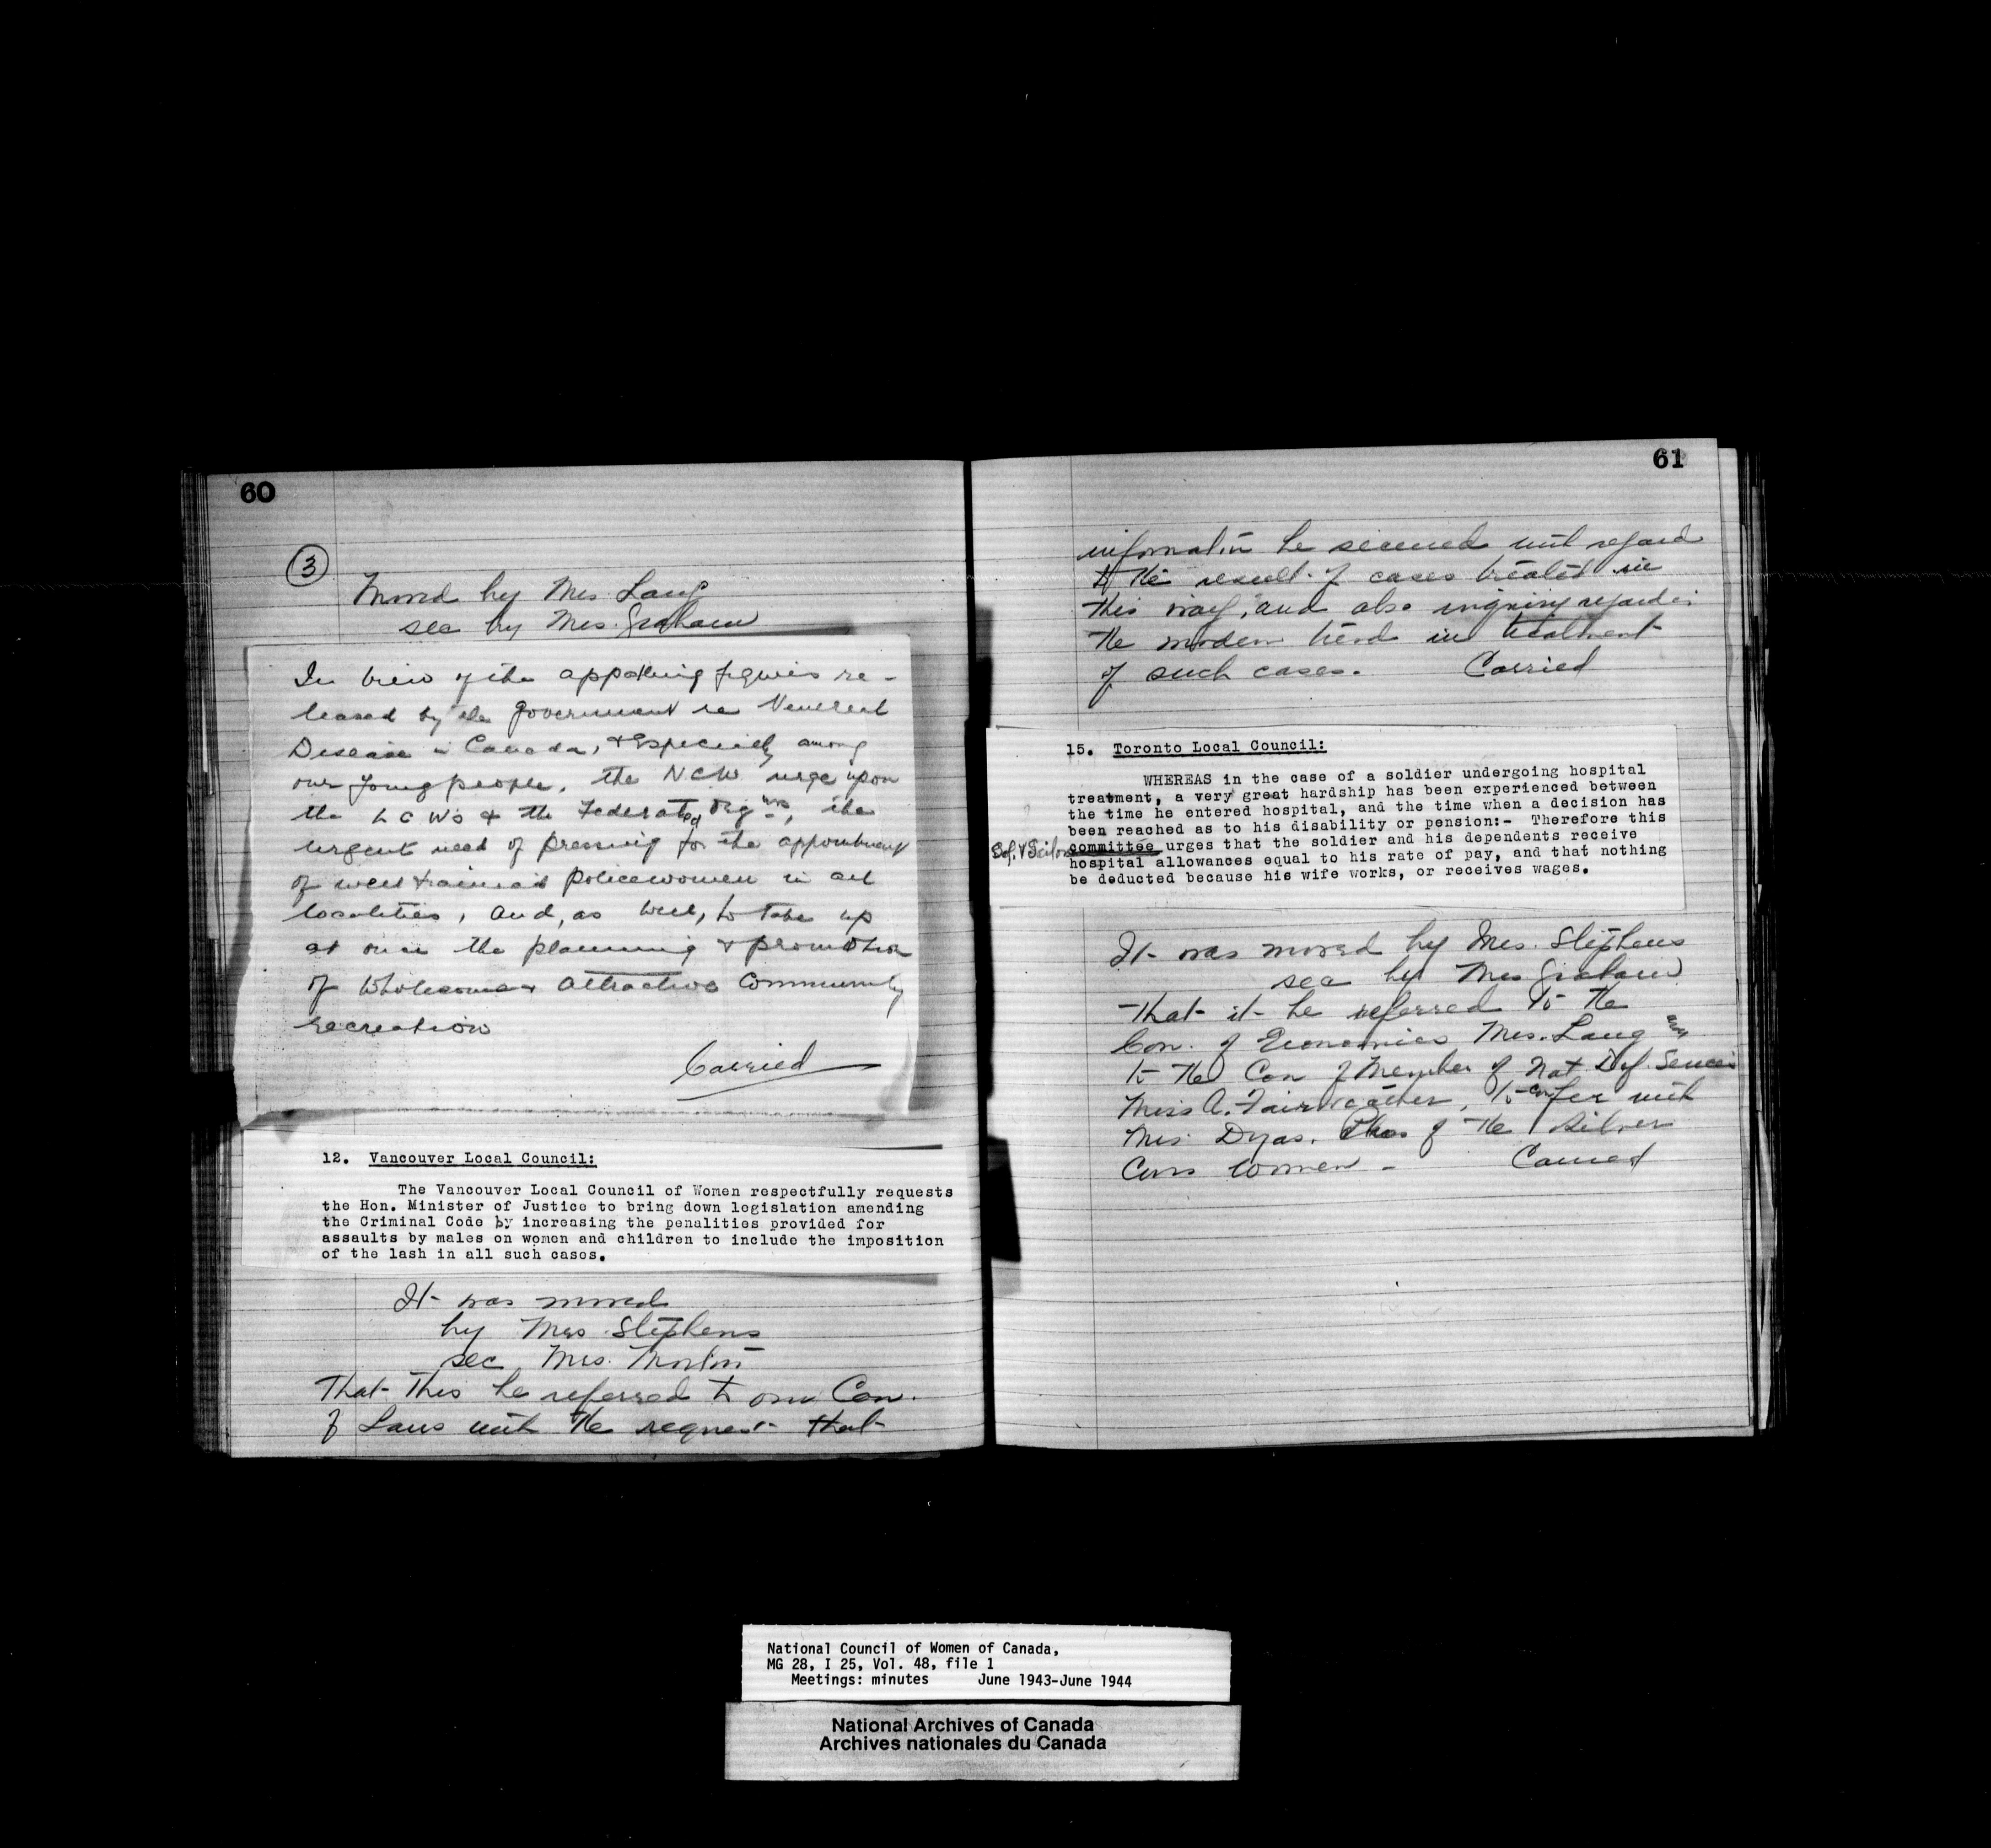 60
③
Moved by Mrs Laug
sec by Mrs. Graham
In view of the appalling figures re-
leased by the government re Venereal
Disease in Canada, & especially among
our young people, the NCW urge upon
the LCWs & the Federated Orgns, the
urgent need of pressing for the appointment
of well trained policewomen in all
localities, and, as well, to take up
at once the planning & promotion
of wholesome & attractive community
recreation
Carried
12. Vancouver Local Council:
The Vancouver Local Council of Women respectfully requests
the Hon. Minister of Justice to bring down legislation amending
the Criminal Code by increasing the penalities provided for
assaults by males on women and children to include the imposition
of the lash in all such cases.
It was moved
by Mrs Stephens
sec Mrs. Morton
That This be referred to our Con.
of Laws with the request that
61
information be secured with regard
to the result of cases treated in
this way, and also inquiry regarding
the modern trend in treatment
of such cases. Carried
15. Toronto Local Council:
WHEREAS in the case of a soldier undergoing hospital
treatment, a very great hardship has been experienced between
the time he entered hospital, and the time when a decision has
been reached as to his disability or pension:- Therefore this
committee urges that the soldier and his dependents receive
hospital allowances equal to his rate of pay, and that nothing
be deducted because his wife works, or receives wages.
It was moved by Mrs. Stephens
sec by Mrs Graham
That it be referred to the
Con. of Economics Mrs. Laug and
to the Con of Member of Nat Def. Services
Miss A. Fairweather, to confer with
Mrs. Dyas. of the Silver
Cross women - Carried
National Council of Women of Canada,
MG 28, I 25, Vol. 48, file 1
Meetings: minutes June 1943-June 1944
National Archives of Canada
Archives nationales du Canada